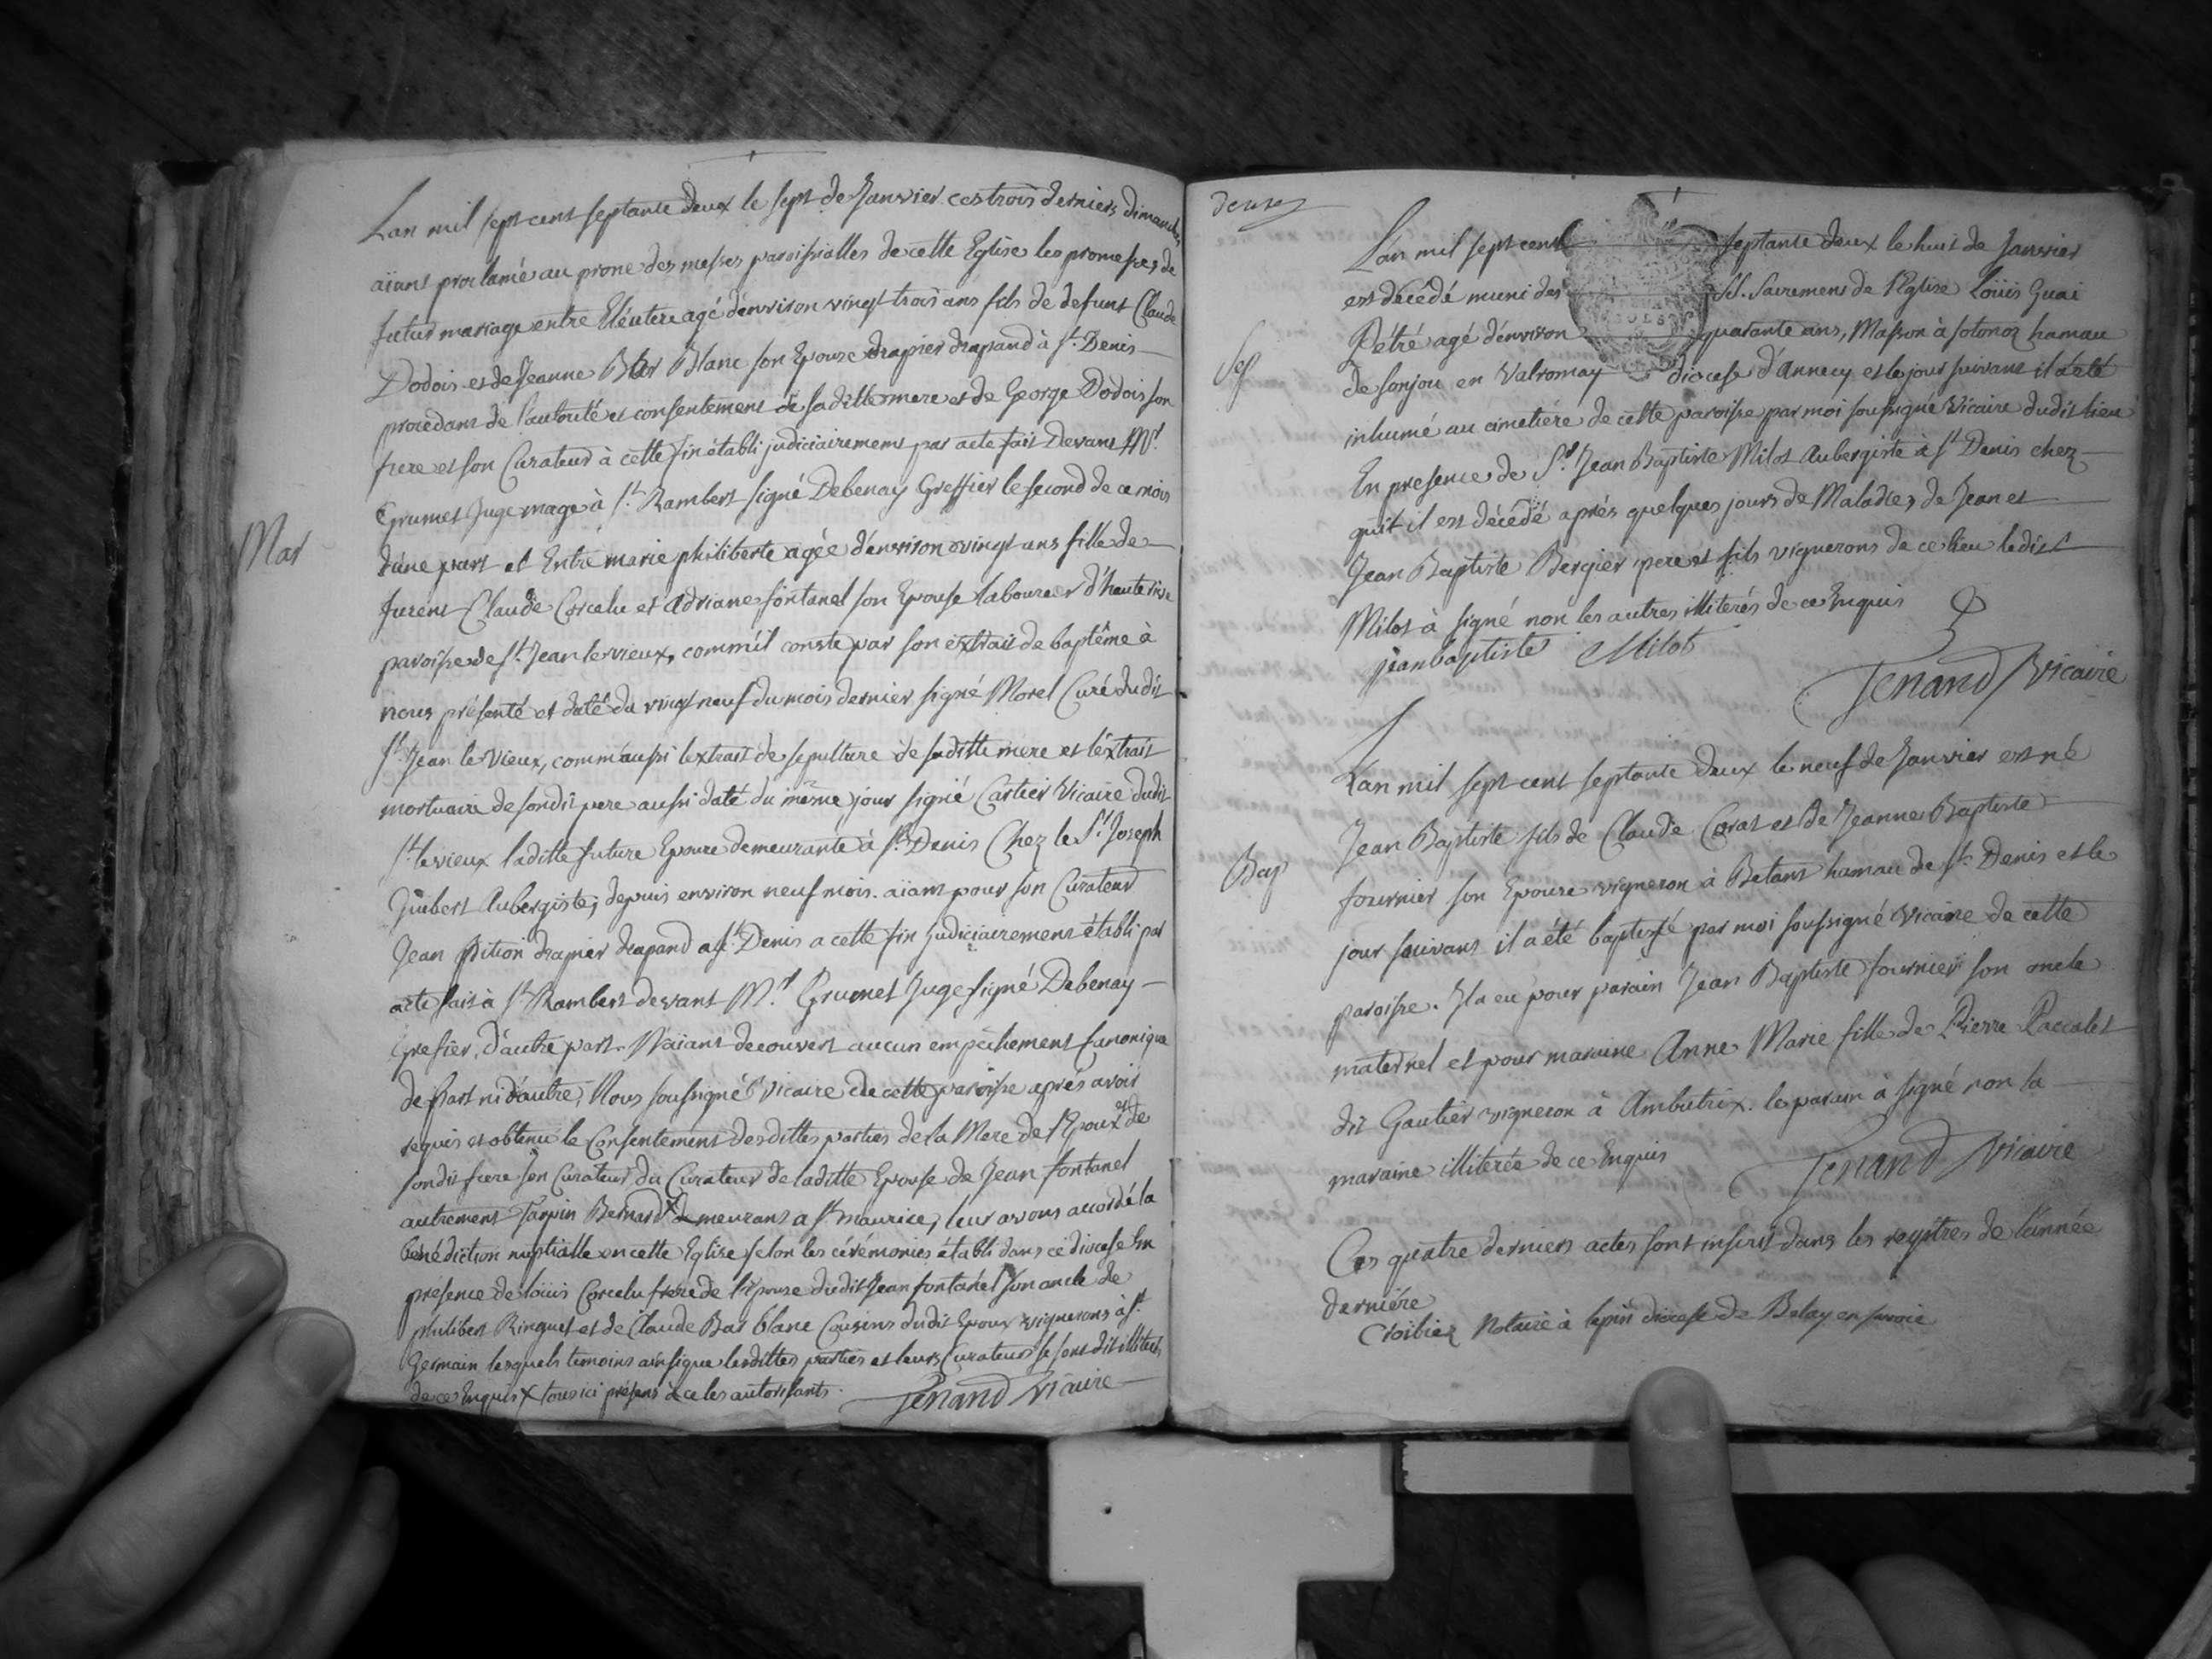 Lan mil sept cent septante deux le sept de Janvier ces trois derniers dimanches
aïant proclamé au prone des messes paroissialles de cette Eglise les promesses de
futur mariage entre Eléutere agé d'environ vingt trois ans fils de defunt Claude
Dodois et de Jeanne Bar Blanc son Epouse drapier drapand à St. Denis
procedant de l'autorité et consentement de sa ditte mere et de George Dodois son
frere et son Curateur à cette fin établi judiciairement par acte fait devant Mr.
Grumet Juge mage à St. Rambert signé Debenay Greffier le second de ce mois
d'une part et Entre marie philiberte agée d'environ vingt ans fille de
furent Claude Corcelu et Adriane fontanel son Epouse laboureur d'hauterive
Mar
paroisse de St. Jean le vieux, comm'il conste par son extrait de baptême à
nous présenté et daté du vingt neuf du mois dernier signé Morel Curé dudit
St. Jean le Vieux, comm'aussi lextrait de sepulture de sa ditte mere et léxtrait
mortuaire de sondit pere aussi daté du même jour signé Cartier Vicaire dudit
St. le vieux laditte future Epouse demeurante à St. Denis Chez le Sr. Joseph
Jiubert Aubergiste, depuis environ neuf mois. aïant pour son Curateur
Jean Pition drapier drapand a St. Denis a cette fin judiciairement établi par
acte fait à St. Rambert devant Mr. Grumet Juge signé Debenay
Grefier, d'autre part. N'aïant decouvert aucun empêchement Canonique
de part ni d'autre, Nous soussigné Vicaire de cette paroisse aprés avoir
requis et obtenu le Consentement desdittes parties de la Mere de l'Epoux et de
sondit frere son Curateur, du Curateur de laditte Epouse de Jean fontanel
autrement Tarpin Bernard X demeurant a St. maurice, leur avons accordé la
benédiction nuptialle en cette Eglise selon les cérémonies établi dans ce diocese En
présence de Loüis Corcelu frere de l'Epouse dudit Jean fontanel son oncle de
philibert Ringuet et de Claude Bar blanc Cousins dudit Epoux vignerons à St.
Germain lesquels temoins ainsi que lesdittes parties et leurs Curateurs se sont dit illiterés
de ce Enquis X tous ici présens à ce les autorisants.
Jenand Vicaire
deux
Lan mil sept cent septante deux le huit de Janvier
est décédé muni des SS. Sacremens de l'Eglise Loüis Guai
Pétré agé d'environ quarante ans, Masson à Sotonoz hamau
Sep
de Sonjou en Valromay diocese d'Annecy et le jour suivant il a été
inhumé au cimetiére de cette paroisse par moi soussigné Vicaire dudit lieu
En presence de Sr. Jean Baptiste Milot Aubergiste à St. Denis chez
quit il est décédé aprés quelques jours de Maladies, de Jean et
Jean Baptiste Bergier pere et fils vignerons de ce lieu ledit
Milot à signé non les autres illiterés de ce Enquis
jean baptiste Milot
Jenand Vicaire
Lan mil sept cent septante deux le neuf de Janvier est né
Jean Baptiste fils de Claude Corat et de Jeanne Baptiste
Bap
fournier son Epouse vigneron à Betant hamau de St. Denis et le
jour suivant il a été baptisé par moi soussigné Vicaire de cette
paroisse. Il a eu pour parain Jean Baptiste fournier son oncle
maternel et pour maraine Anne Marie fille de Pierre Paccalet
dit Gautier vigneron à Ambutrix. le parain à signé non la
maraine illiterée de ce Enquis
Jenand Vicaire
Ces quatre derniers actes sont inscrit dans les regitres de l'année
derniére
Croibier Notaire à lepin diocese de Belay en savoie